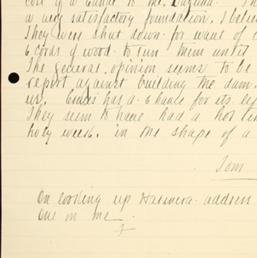 cost of a Candle to Mr.
a very satisfactory foundation, I believe
They were shut down for want of c
6 cords of wood to run them until
The general opinion seems to be
report against building the dam
us. has a chance for its
They seem to have had a hot tim
holy week. in the shape of a
Tom
On looking up address
one in me